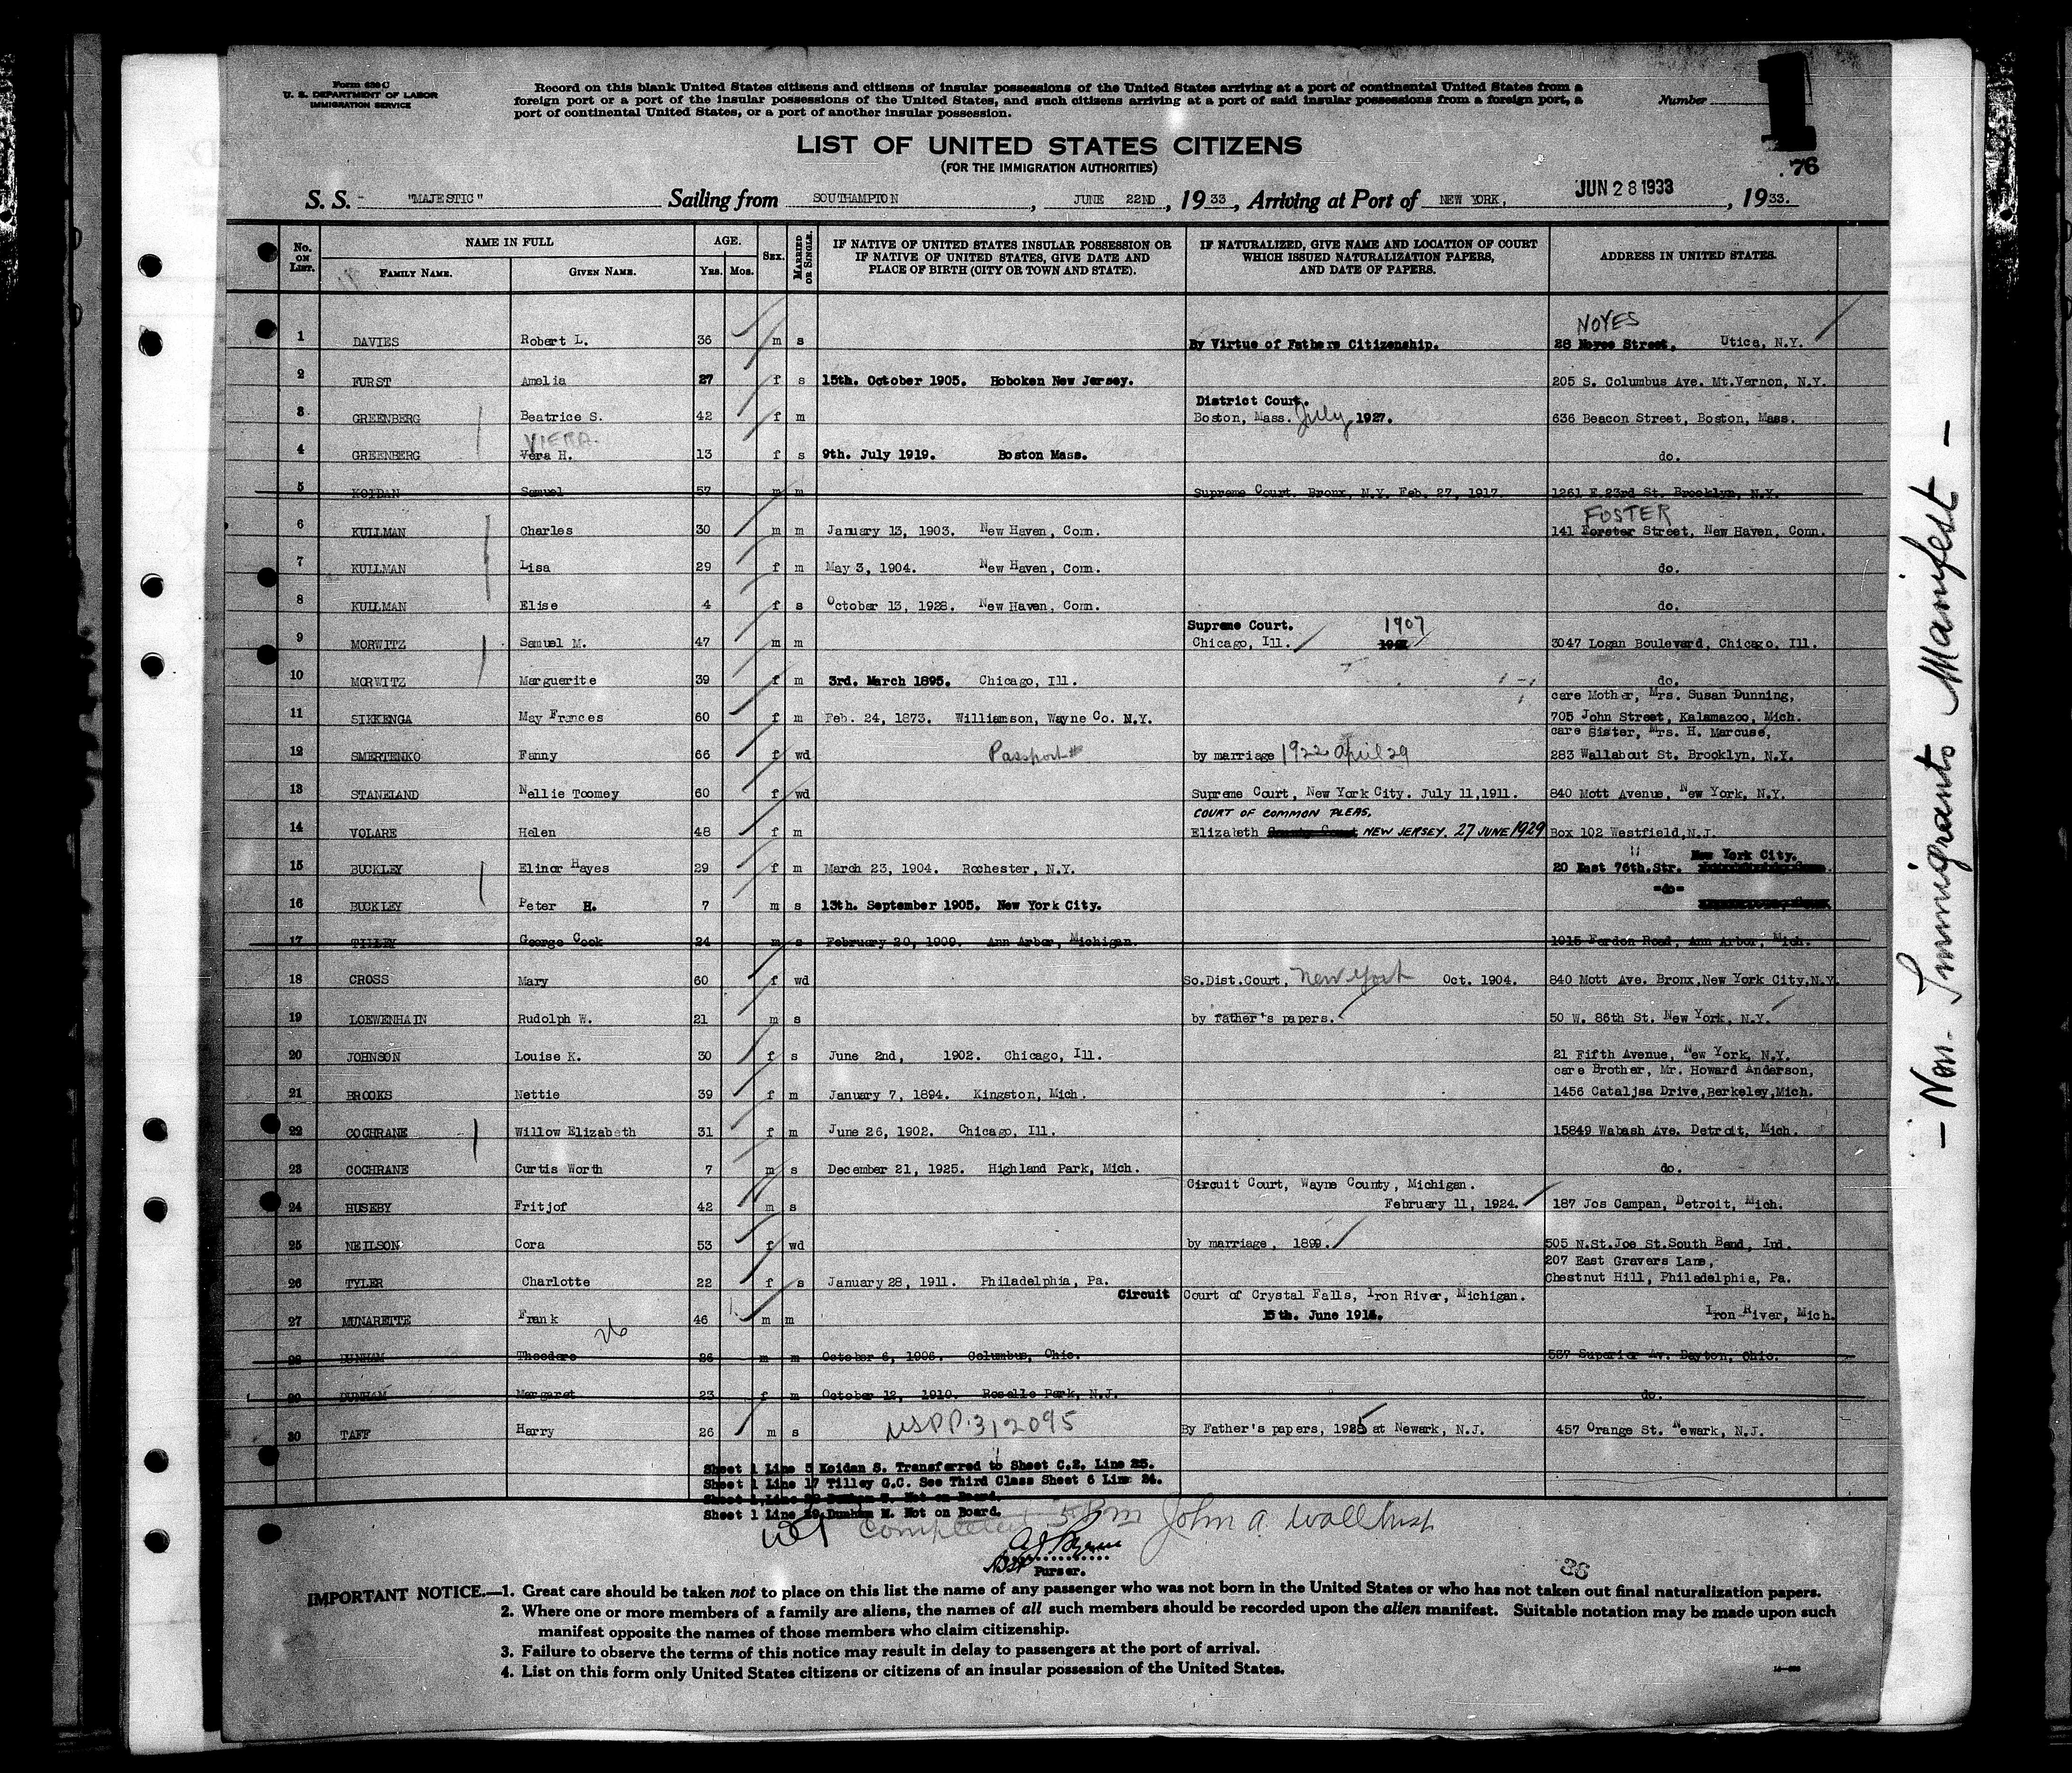 Form 630 C
U. S. DEPARTMENT OF LABOR
IMMIGRATION SERVICE
Record on this blank United States citizens and citizens of insular possessions of the United States arriving at a port of continental United States from a
foreign port or a port of the insular possessions of the United States, and such citizens arriving at a port of said insular possessions from a foreign port, a
port of continental United States, or a port of another insular possession.
Number
1
76
LIST OF UNITED STATES CITIZENS
(FOR THE IMMIGRATION AUTHORITIES)
S. S. "MAJESTIC" Sailing from SOUTHAMPTON, JUNE 22ND, 1933, Arriving at Port of NEW YORK, JUN 28 1933, 1933.
No. ON LIST. NAME IN FULL FAMILY NAME. GIVEN NAME. AGE. Yrs. Mos. SEX. MARRIED OR SINGLE. IF NATIVE OF UNITED STATES INSULAR POSSESSION OR IF NATIVE OF UNITED STATES, GIVE DATE AND PLACE OF BIRTH (CITY OR TOWN AND STATE). IF NATURALIZED, GIVE NAME AND LOCATION OF COURT WHICH ISSUED NATURALIZATION PAPERS, AND DATE OF PAPERS. ADDRESS IN UNITED STATES.
NOYES
1 DAVIES Robert L. 36 m s By Virtue of Fathers Citizenship. 28 Noyes Street, Utica, N.Y.
2 FURST Amelia 27 f s 15th. October 1905. Hoboken New Jersey. 205 S. Columbus Ave. Mt.Vernon, N.Y.
District Court.
3 GREENBERG Beatrice S. 42 f m Boston, Mass. July 1927. 636 Beacon Street, Boston, Mass.
VIERA.
4 GREENBERG Vera H. 13 f s 9th. July 1919. Boston Mass. do.
5 KOIDAN Samuel 57 m m Supreme Court. Bronx, N.Y. Feb. 27, 1917. 1261 E.23rd St. Brooklyn, N.Y.
FOSTER
6 KULLMAN Charles 30 m m January 13, 1903. New Haven, Conn. 141 Forster Street, New Haven, Conn.
7 KULLMAN Lisa 29 f m May 3, 1904. New Haven, Conn. do.
8 KULLMAN Elise 4 f s October 13, 1928. New Haven, Conn. do.
Supreme Court. 1907
9 MORWITZ Samuel M. 47 m m Chicago, Ill. 3047 Logan Boulevard, Chicago, Ill.
10 MORWITZ Marguerite 39 f m 3rd. March 1895. Chicago, Ill. do.
care Mother, Mrs. Susan Dunning,
11 SIKKENGA May Frances 60 f m Feb. 24, 1873. Williamson, Wayne Co. N.Y. 705 John Street, Kalamazoo, Mich.
care Sister, Mrs. H. Marcuse,
12 SMERTENKO Fanny 66 f wd Passport by marriage 1922 April 29 283 Wallabout St. Brooklyn, N.Y.
13 STANELAND Nellie Toomey 60 f wd Supreme Court, New York City. July 11,1911. 840 Mott Avenue, New York, N.Y.
COURT OF COMMON PLEAS,
14 VOLARE Helen 48 f m Elizabeth NEW JERSEY. 27 JUNE 1929 Box 102 Westfield,N.J.
New York City.
15 BUCKLEY Elinor Hayes 29 f m March 23, 1904. Rochester, N.Y. 20 East 76th.Str.
-do-
16 BUCKLEY Peter H. 7 m s 13th. September 1905. New York City.
17 TILLEY George Cook 24 m s February 20, 1909. Ann Arbor, Michigan. 1015 Ferdon Road, Ann Arbor, Mich.
18 CROSS Mary 60 f wd So.Dist.Court, New York Oct. 1904. 840 Mott Ave. Bronx,New York City,N.Y.
19 LOEWENHAIN Rudolph W. 21 m s by father's papers. 50 W. 86th St. New York, N.Y.
20 JOHNSON Louise K. 30 f s June 2nd, 1902. Chicago, Ill. 21 Fifth Avenue, New York, N.Y.
care Brother, Mr. Howard Anderson,
21 BROOKS Nettie 39 f m January 7, 1894. Kingston, Mich. 1456 Cataljsa Drive,Berkeley,Mich.
22 COCHRANE Willow Elizabeth 31 f m June 26, 1902. Chicago, Ill. 15849 Wabash Ave. Detroit, Mich.
23 COCHRANE Curtis Worth 7 m s December 21, 1925. Highland Park, Mich. do.
Circuit Court, Wayne County, Michigan.
24 HUSEBY Fritjof 42 m s February 11, 1924. 187 Jos Campan, Detroit, Mich.
25 NEILSON Cora 53 f wd by marriage, 1899. 505 N.St.Joe St.South Bend, Ind.
207 East Gravers Lane,
26 TYLER Charlotte 22 f s January 28, 1911. Philadelphia, Pa. Chestnut Hill, Philadelphia, Pa.
Circuit Court of Crystal Falls, Iron River, Michigan.
27 MUNARETTE Frank 46 m m 15th. June 1914. Iron River, Mich.
26
28 DUNHAM Theodore 26 m m October 6, 1906. Columbus, Ohio. 587 Superior Av. Dayton, Ohio.
29 DUNHAM Margaret 23 f m October 12, 1910. Roselle Park, N.J. do.
30 TAFF Harry 26 m s USPP.312095 By Father's papers, 1925 at Newark, N.J. 457 Orange St. Newark, N.J.
Sheet 1 Line 5 Koidan S. Transferred to Sheet C.2. Line 25.
Sheet 1 Line 17 Tilley G.C. See Third Class Sheet 6 Line 24.
Sheet 1 Line 28 Dunham T. Not on Board.
Sheet 1 Line 29 Dunham M. Not on Board.
Completed John A. Wallhust
Asst
Purser.
36
IMPORTANT NOTICE.—1. Great care should be taken not to place on this list the name of any passenger who was not born in the United States or who has not taken out final naturalization papers.
2. Where one or more members of a family are aliens, the names of all such members should be recorded upon the alien manifest. Suitable notation may be made upon such
manifest opposite the names of those members who claim citizenship.
3. Failure to observe the terms of this notice may result in delay to passengers at the port of arrival.
4. List on this form only United States citizens or citizens of an insular possession of the United States.
- Non. Immigrants Manifest -